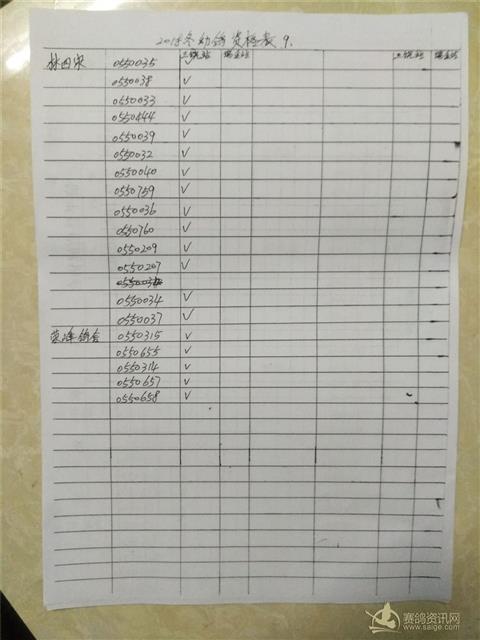 2018冬幼鸽资格表 9.
三饶站 瑞金站 三饶站 瑞金站
林四宋 0550035 ✓
0550038 ✓
0550033 ✓
0550444 ✓
0550039 ✓
0550032 ✓
0550040 ✓
0550759 ✓
0550036 ✓
0550760 ✓
0550209 ✓
0550207 ✓
0550034 ✓
0550037 ✓
鸽舍 0550315 ✓
0550655 ✓
0550314 ✓
0550657 ✓
0550658 ✓
赛鸽资讯网
www.saige.com